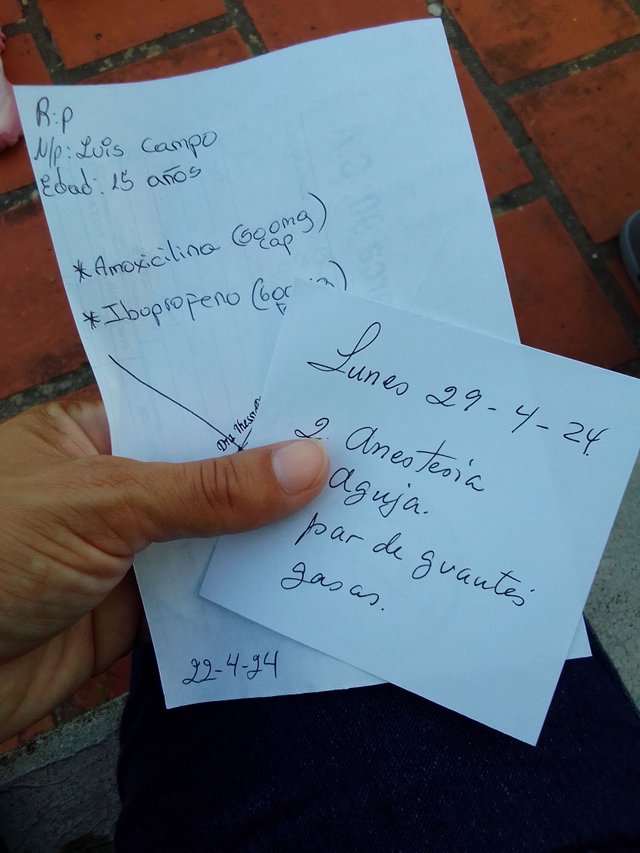 R:p
N/p: Luis Campo
Edad: 15 años
*Amoxicilina (500mg)
cap
*Iboprofeno
Dra
22-4-24
Lunes 29-4-24
2 Anestesia
Aguja.
par de guantes
gasas.